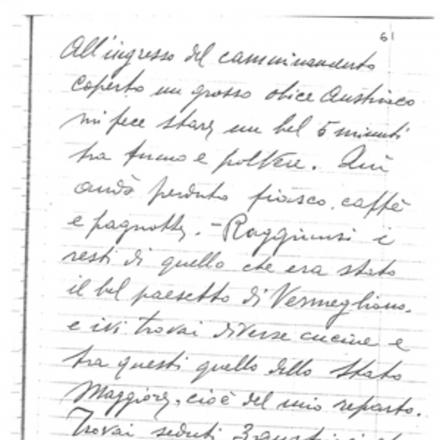 61
All'ingresso del camminamento
coperto un grosso obice Austriaco
mi fece stare un bel 5 minuti
tra fumo e polvere. Qui
andò perduto fiasco, caffè
e pagnotta. - Raggiunsi i
resti di quello che era stato
il bel paesetto di Vermegliano.
e ivi trovai diverse cucine e
tra questi quello dello Stato
Maggiore, cioè del mio reparto.
Trovai seduti 3